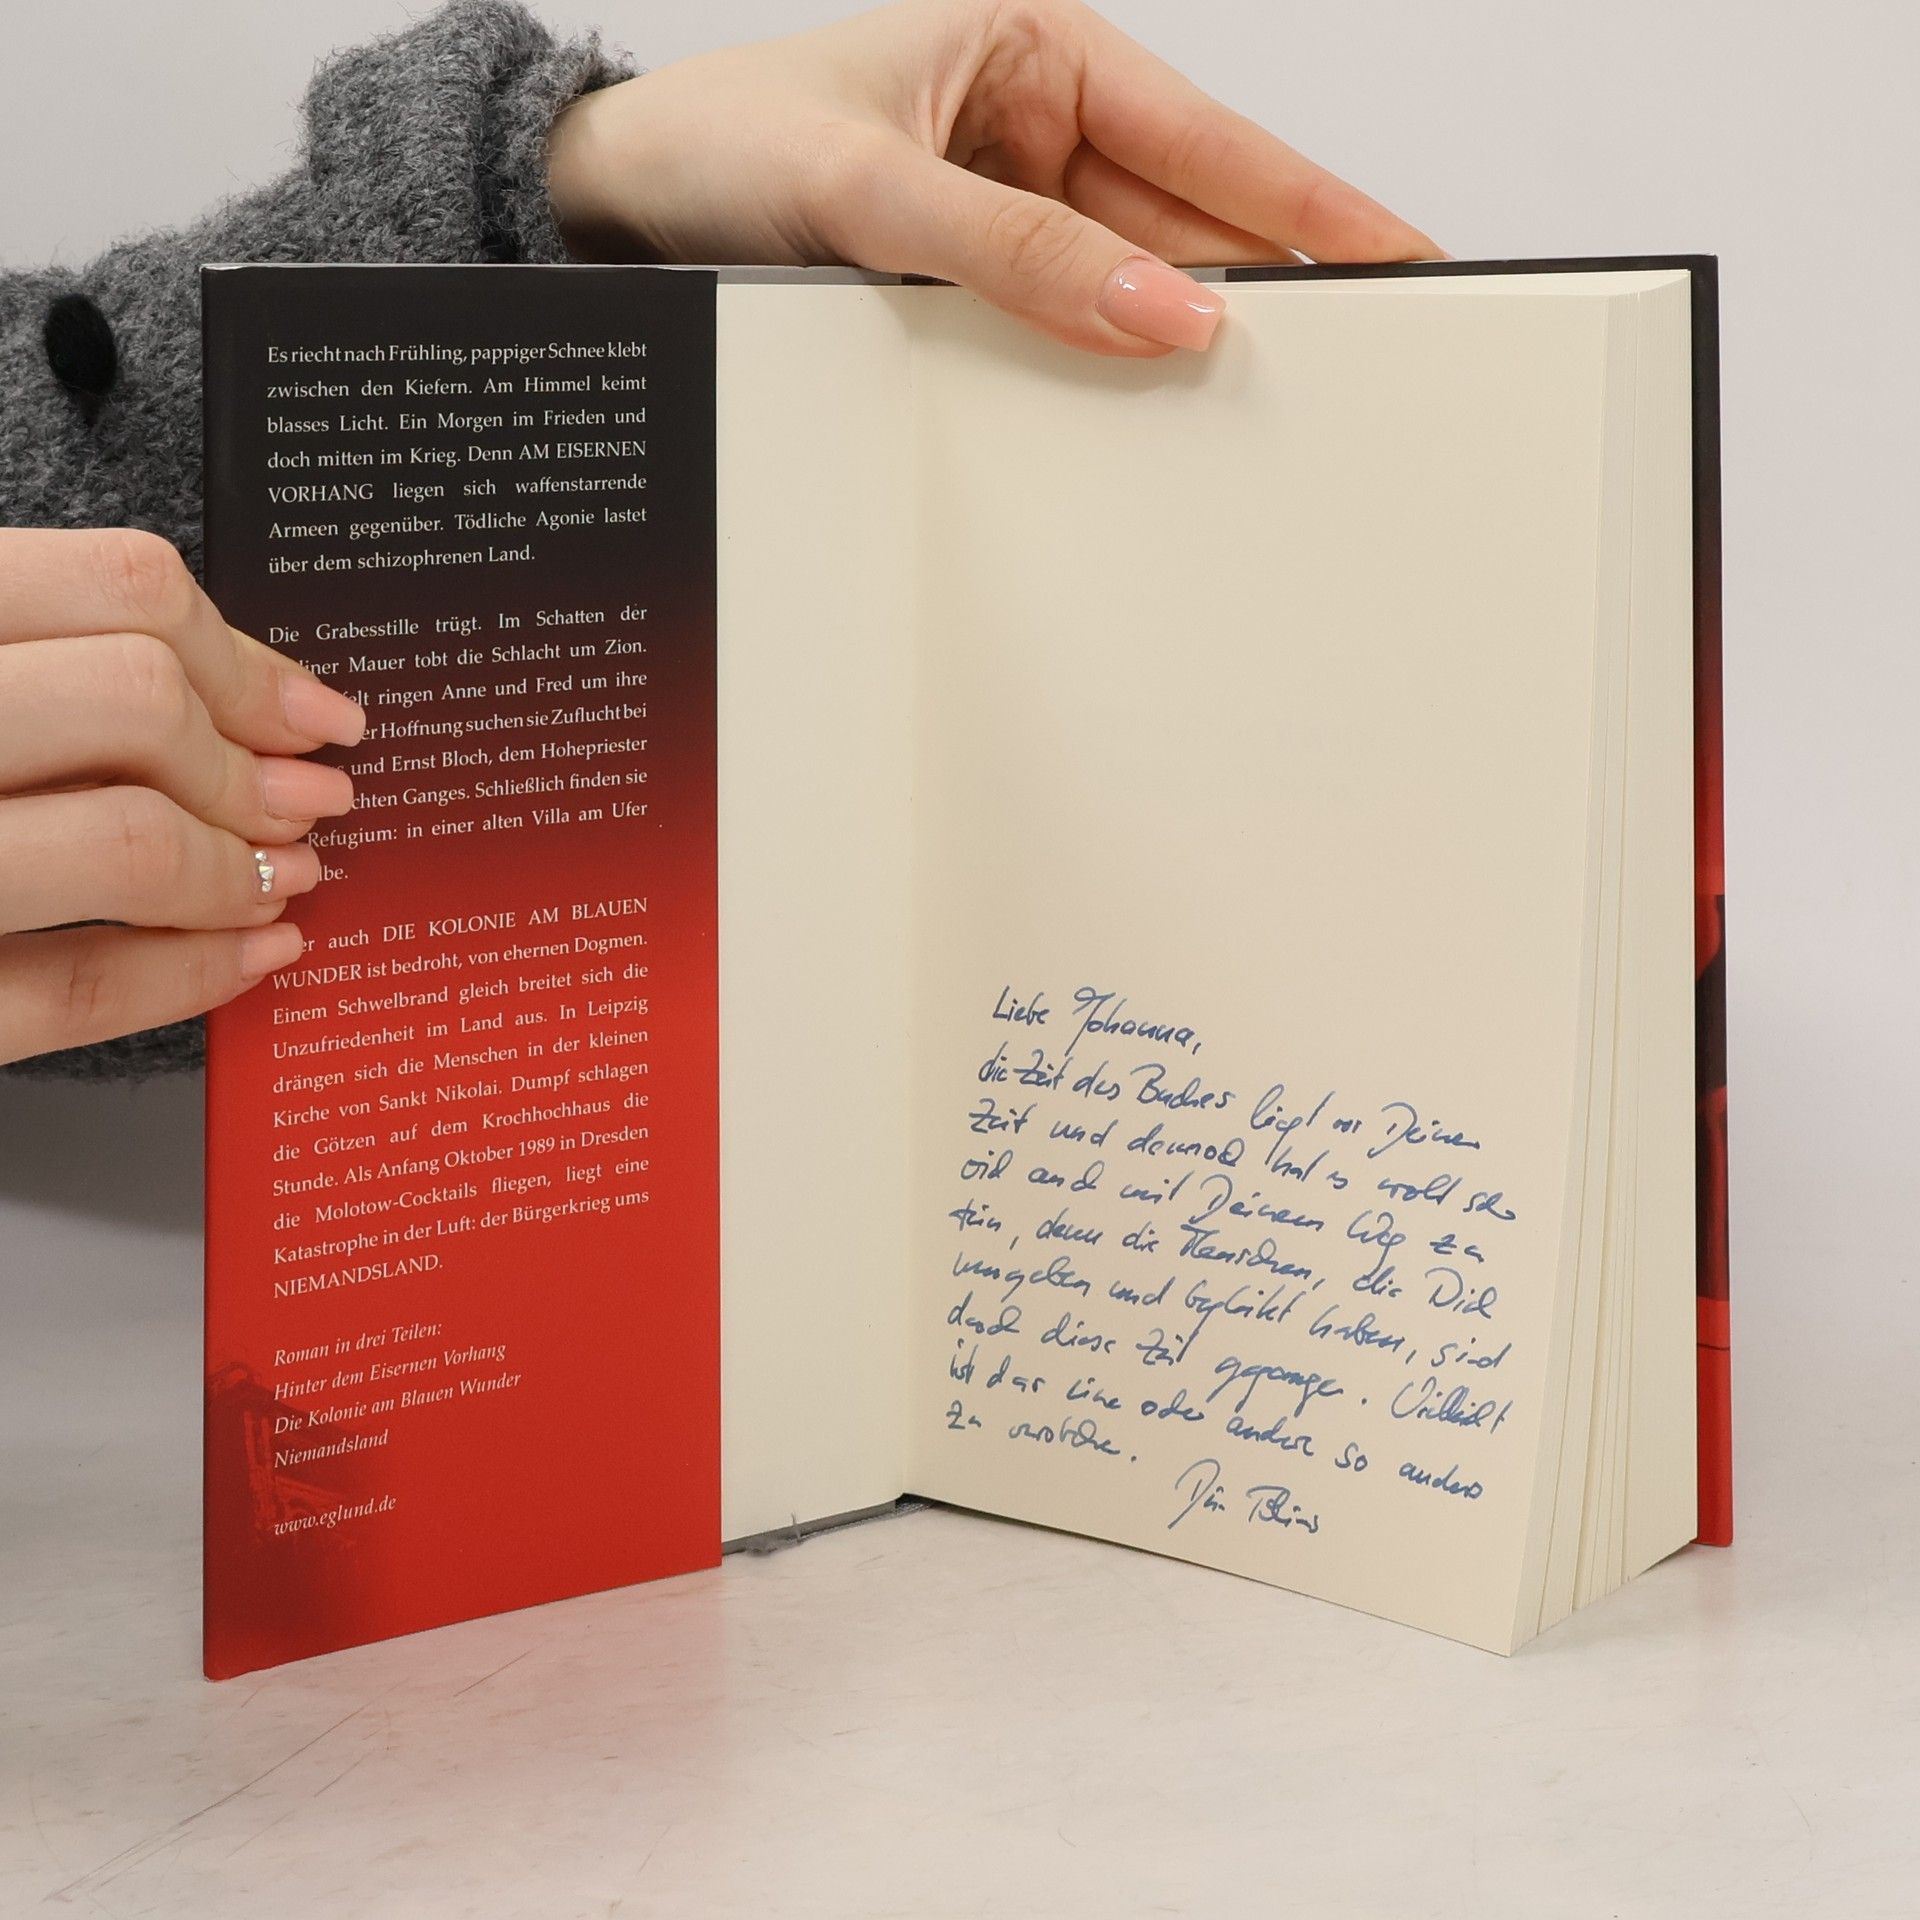 Es riecht nach Frühling, pappiger Schnee klebt
zwischen den Kiefern. Am Himmel keimt
blasses Licht. Ein Morgen im Frieden und
doch mitten im Krieg. Denn AM EISERNEN
VORHANG liegen sich waffenstarrende
Armeen gegenüber. Tödliche Agonie lastet
über dem schizophrenen Land.
Die Grabesstille trügt. Im Schatten der
Mauer tobt die Schlacht um Zion.
ringen Anne und Fred um ihre
Hoffnung suchen sie Zuflucht bei
und Ernst Bloch, dem Hohepriester
Ganges. Schließlich finden sie
Refugium: in einer alten Villa am Ufer
auch DIE KOLONIE AM BLAUEN
WUNDER ist bedroht, von ehernen Dogmen.
Einem Schwelbrand gleich breitet sich die
Unzufriedenheit im Land aus. In Leipzig
drängen sich die Menschen in der kleinen
Kirche von Sankt Nikolai. Dumpf schlagen
die Götzen auf dem Krochhochhaus die
Stunde. Als Anfang Oktober 1989 in Dresden
die Molotow-Cocktails fliegen, liegt eine
Katastrophe in der Luft: der Bürgerkrieg ums
NIEMANDSLAND.
Roman in drei Teilen:
Hinter dem Eisernen Vorhang
Die Kolonie am Blauen Wunder
Niemandsland
www.eglund.de
Liebe Johanna,
die Zeit des Buches liegt vor Deiner
Zeit und dennoch hat es wohl sehr
viel auch mit Deinem Weg zu
tun, denn die Menschen, die Dich
umgeben und begleitet haben, sind
durch diese Zeit gegangen. Vielleicht
ist das eine oder andere so anders
zu verstehen.
Dein